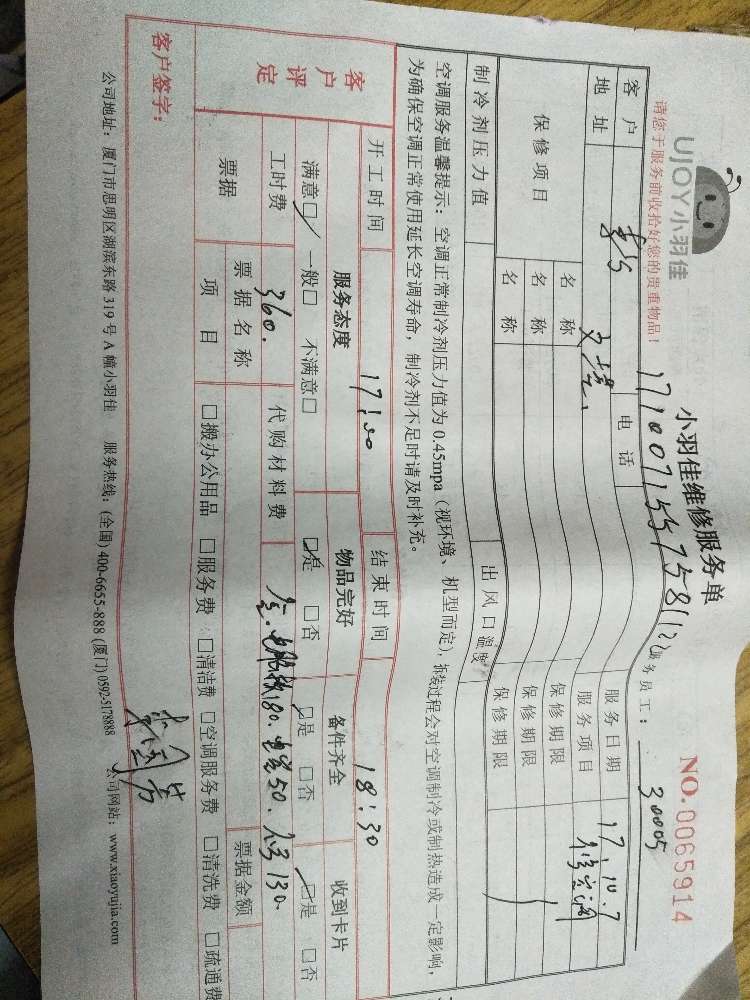 UJOY小羽佳
小羽佳维修服务单
NO.0065914
请您于服务前收拾好您的贵重物品！
17100715575811
服务员工： 30005
客户 电话 服务日期 17.10.7
地址 服务项目 修空调
保修项目 名称 保修期限
名称 保修期限
名称 保修期限
制冷剂压力值 出风口温度
空调服务温馨提示：空调正常制冷剂压力值为0.45mpa（视环境、机型而定），拆装过程会对空调制冷或制热造成一定影响，
为确保空调正常使用延长空调寿命，制冷剂不足时请及时补充。
开工时间 17:50 结束时间 18:30
客户评定 服务态度 物品完好 备件齐全 收到卡片
满意□ 一般□ 不满意□ □是 □否 □是 □否 □是 □否
工时费 360. 代购材料费 180. 50. 130.
票据 票据名称 票据金额
项目 □搬办公用品 □服务费 □清洁费 □空调服务费 □清洗费 □疏通费
客户签字：
公司地址：厦门市思明区湖滨东路319号A幢小羽佳 服务热线：(全国) 400-6655-888 (厦门) 0592-5178888 公司网站：www.xiaoyujia.com